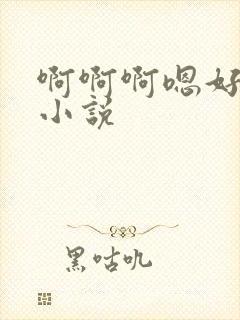 啊啊啊嗯好
小説
黑咕吼